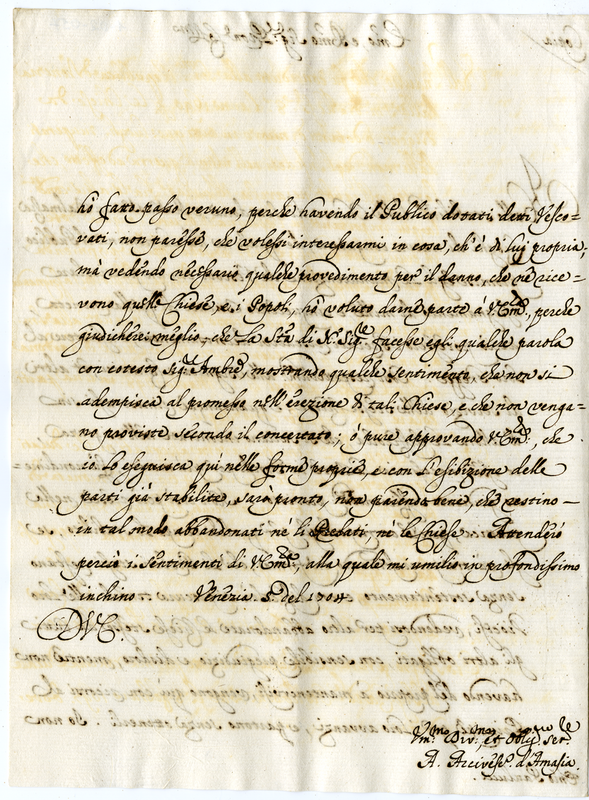 hò fatto passo veruno, perche havendo il Publico dotati detti Vesco-
vati, non paresse, che volessi interessarmi in cosa, ch'è di lui propria;
mà vedendo necessario qualche provedimento per il danno, che ne rice-
vono quelle Chiese, e i Popoli, hò voluto darne parte à V. Em.ᶻᵃ, perche
giudicherei meglio, che La Stà di N.ʳᵒ Sig.ʳᵉ facesse egli qualche parola
con cotesto Sig.ʳ Ambre, mostrando qualche sentimento, che non si
adempisca al promesso nell'erezione di tali Chiese, e che non venga-
no proviste secondo il concertato; ò pure approvando V. Em.ᶻᵃ, che
io lo eseguisca quì nelle forme proprie, e con l'esibizione delle
parti già stabilite, sarò pronto, non parendo bene, che restino
in tal modo abbandonati nè li Prelati, nè le Chiese. Attenderò
perciò i sentimenti di V. Em.ᶻᵃ, alla quale mi umilio in profondissimo
inchino Venezia
D.V.E.
Vm.ᵐᵒ Div.ᵐᵒ, et Obl.ᵐᵒ Ser.ʳᵉ
A. Arcivesc.º d'Amasia.